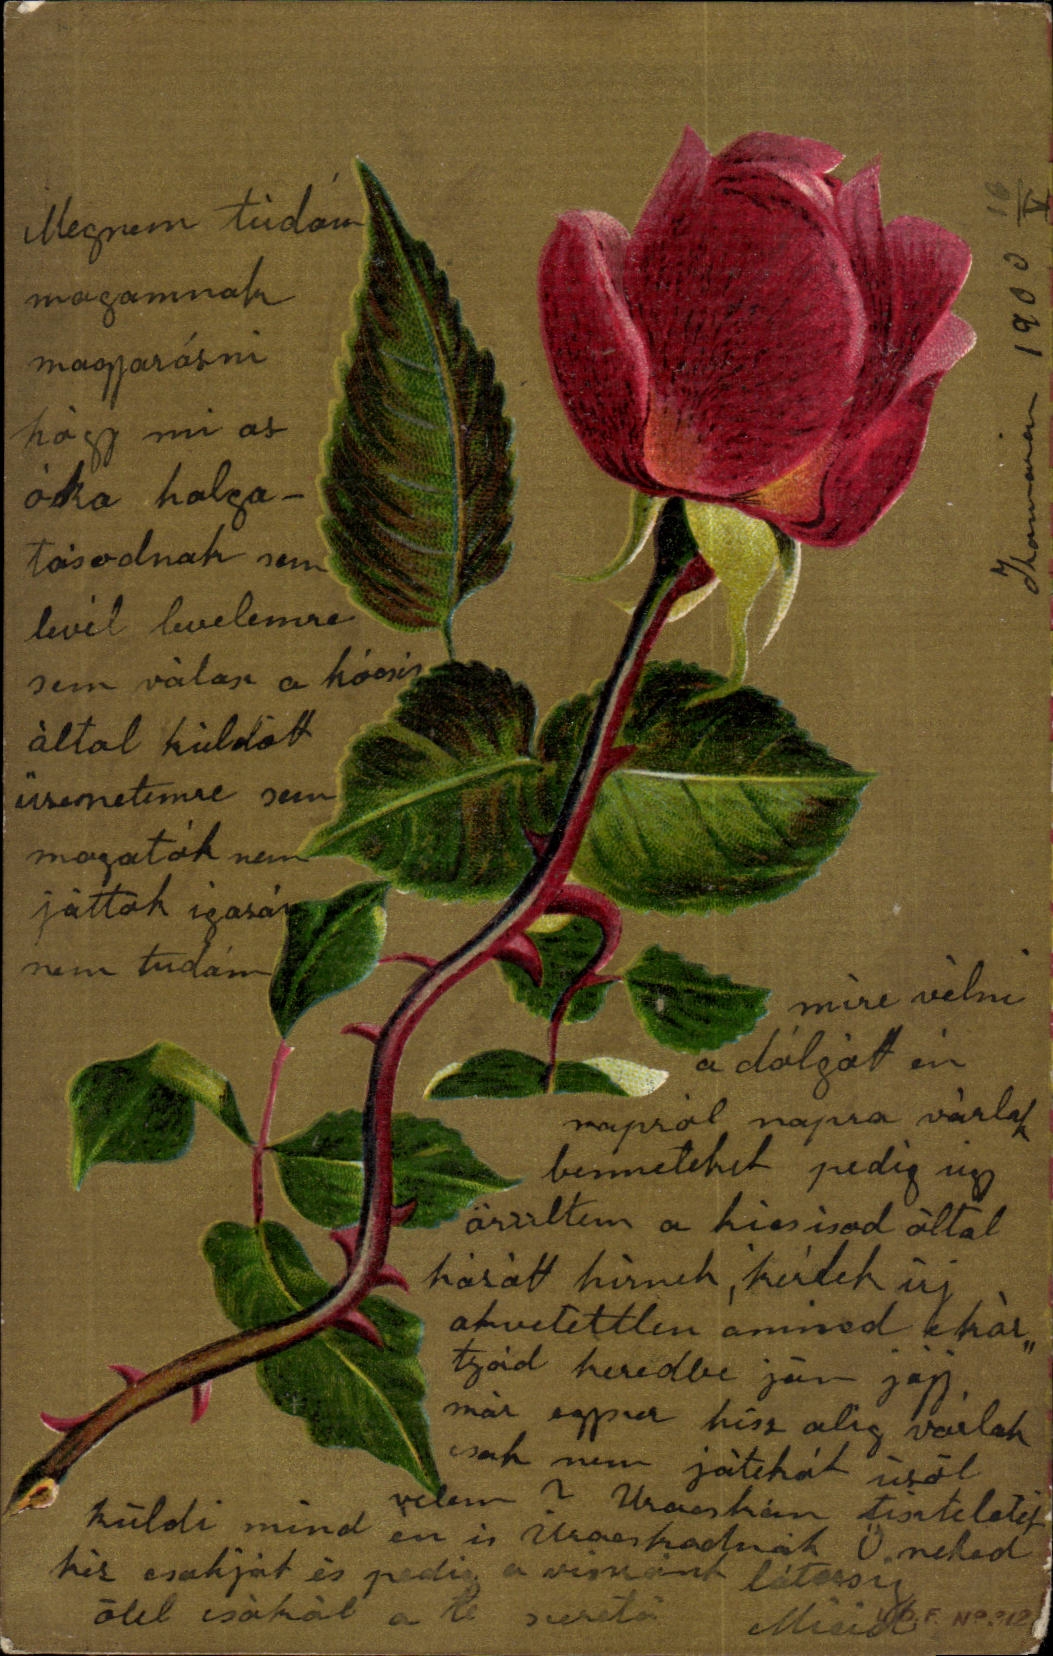 Megnem tudóm
magamnak
magyarásni
hógy mi as
óka halga-
tásodnak sem
levél levelemre
sem válasz a kócsis
által küldött
üzenetemre sem
magatók nem
játtok igazán
nem tudóm
mire vélni
a dólgót én
napról napra várlak
benneteket pedig úgy
örültem a kicsisod által
hózótt hírnek, kérlek írj
akvetettlen amined e kár„
tyád keredbe jön jójj,
már egyszer hisz alig várlak
csak nem játékót űzöl
velem? Uracskám tiszteletét
küldi mind én is Uracskadnak Ő neked
kéz csokját és pedig a viszónt látássig
ölel csókól a te szerető
Micid
Thomasian 1900 16/V
F. No. 212